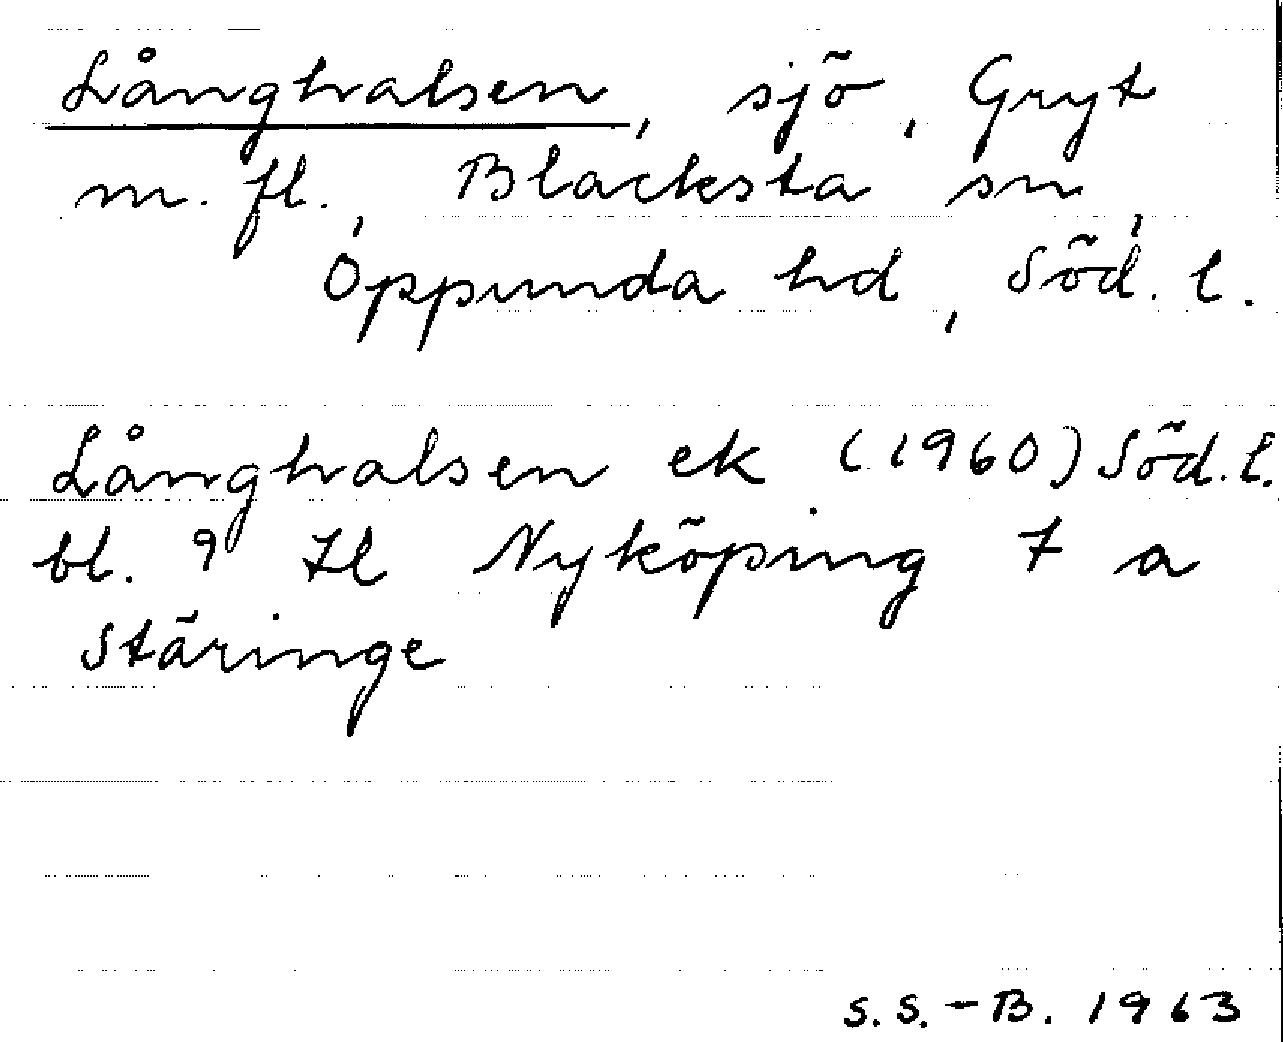 Långhalsen, sjö, Gryt
m. fl., Blacksta sn,
Oppunda hd, Söd. l.
Långhalsen ek (1960) Söd. l.
bl. 9 H Nyköping 7 a
Stäringe
S. S.-B. 1963